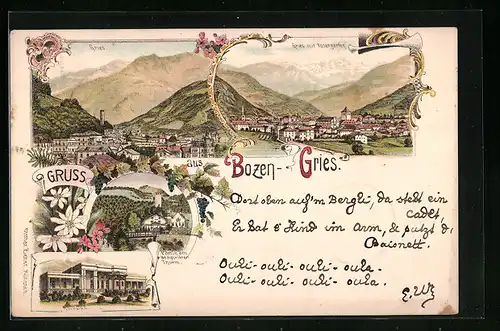 Gries
Gries mit Rosengarten
GRUSS
aus
BOZEN-GRIES.
Dort oben auf'm Bergli, da steht ein
Cadet,
Er hat s'Kind im Arm, & putzt d.
Baionett.
Ouli-ouli-ouli-oula.
Ouli-ouli-ouli-oula.
E.